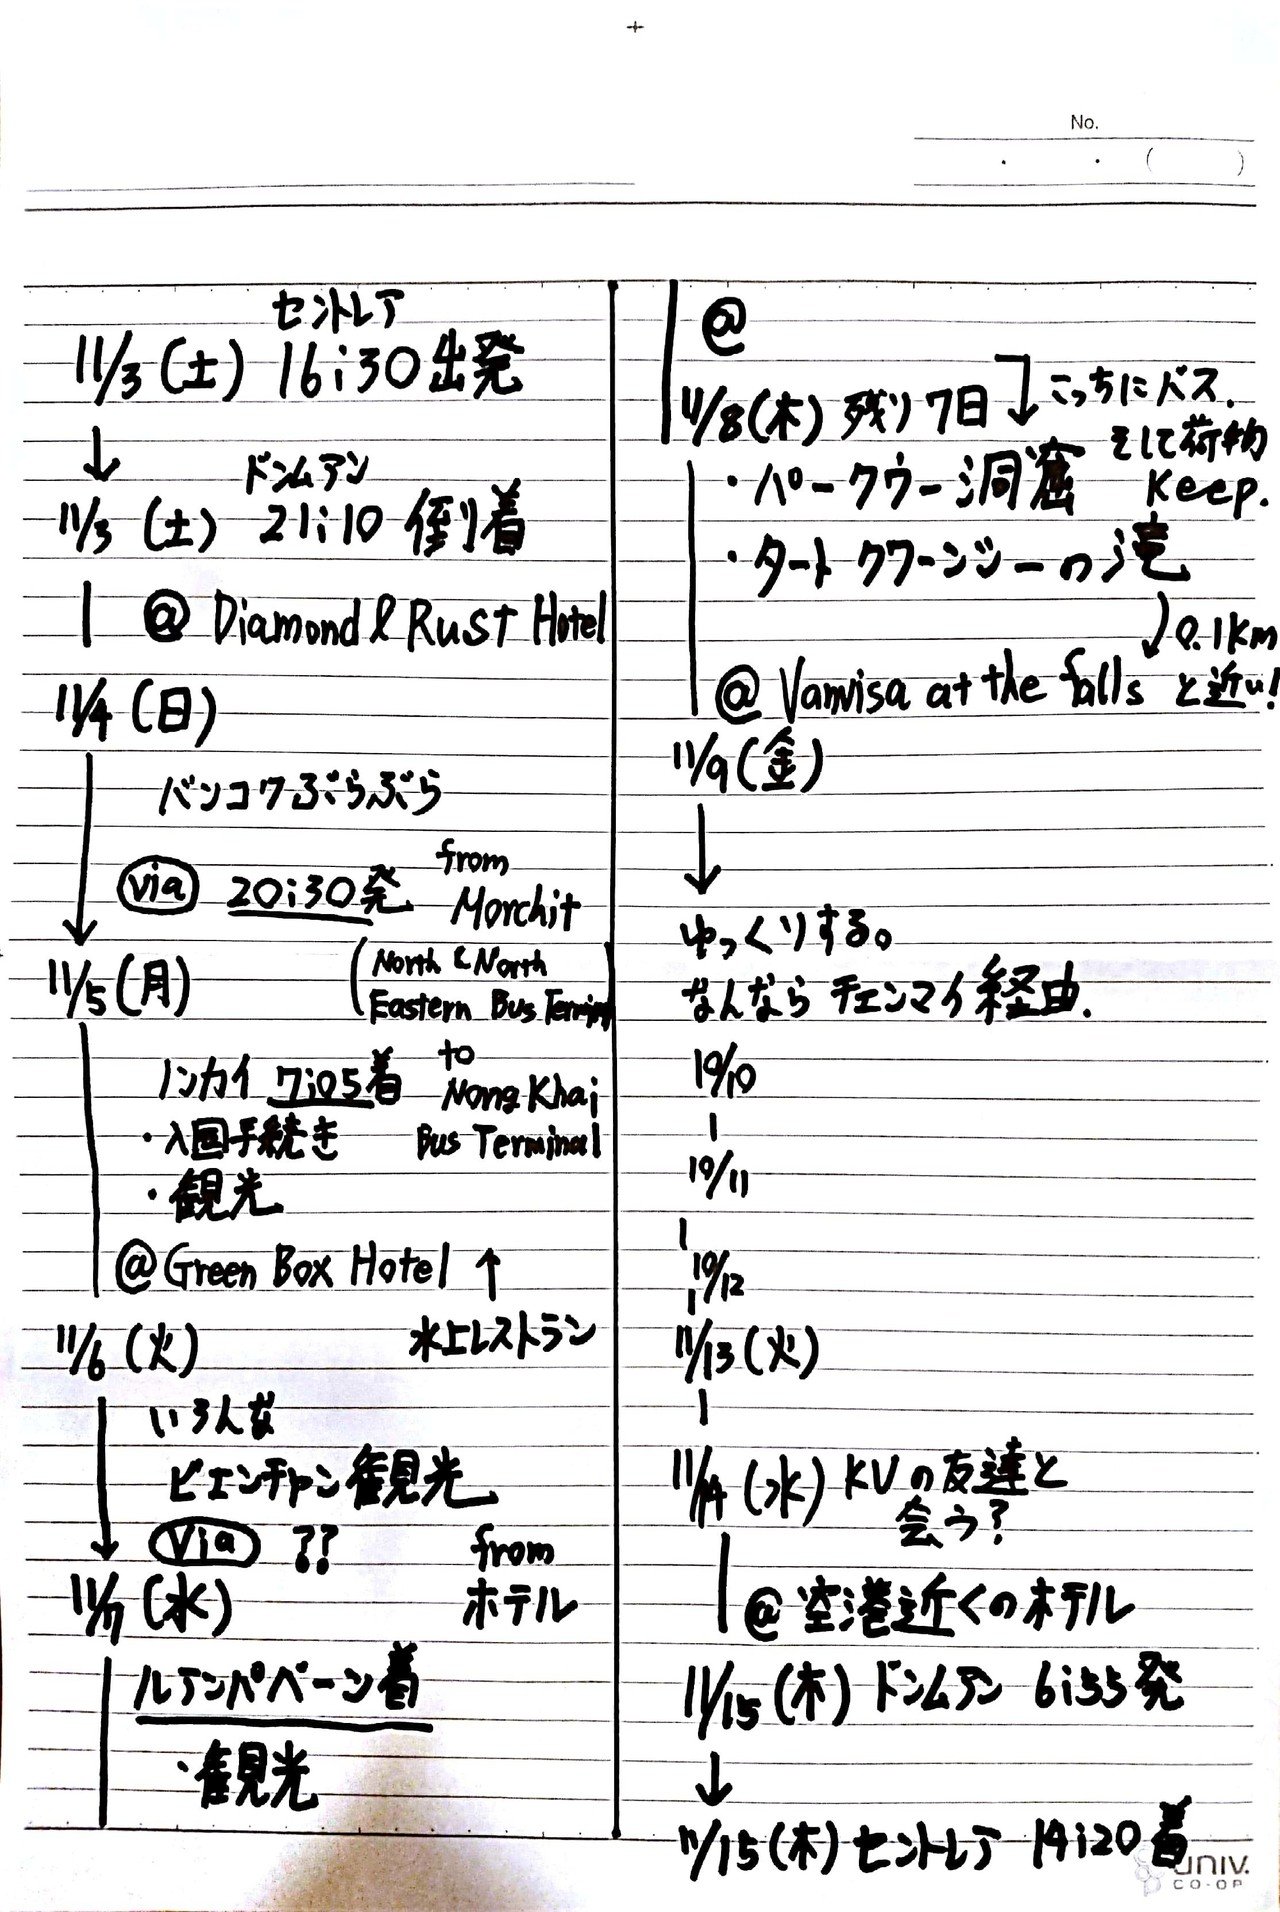 No.
・ ・ ( )
セントレア
11/3 (土) 16:30 出発
ドンムアン
11/3 (土) 21:10 到着
@ Diamond & Rust Hotel
11/4 (日)
バンコクぶらぶら
via 20:30発 from
Morchit
11/5 (月) (North & North
Eastern Bus Terminal
ノンカイ 7:05着 to
Nong Khai
・入国手続き Bus Terminal
・観光
@ Green Box Hotel ↑
水上レストラン
11/6 (火)
いろんな
ビエンチャン観光
via ?? from
11/7 (水) ホテル
ルアンパバーン着
・観光
@
11/8 (木) 残り7日 こっちにバス.
そして荷物
・パークウー洞窟 Keep.
・タートクワーンシーの滝
0.1Km
@ Vanvisa at the falls と近い!
11/9 (金)
ゆっくりする。
なんなら チェンマイ経由.
10/10
10/11
10/12
11/13 (火)
11/14 (水) KVの友達と
会う?
@ 空港近くのホテル
11/15 (木) ドンムアン 6:55発
11/15 (木) セントレア 14:20着
UNIV.
CO-OP